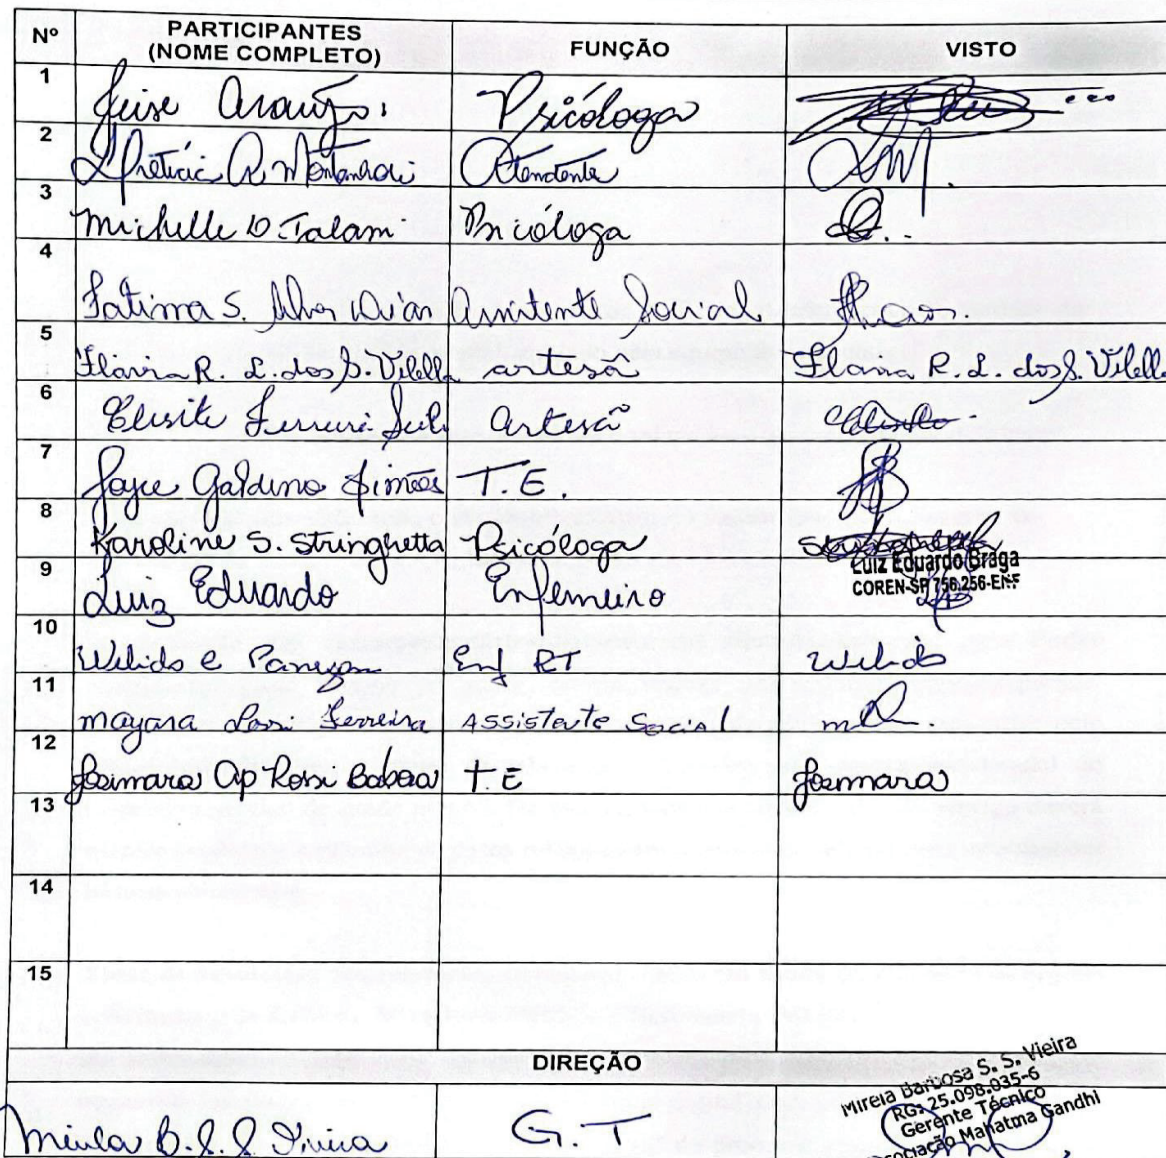 Nº PARTICIPANTES (NOME COMPLETO) FUNÇÃO VISTO
1 Araújo Psicóloga
2 R. Atendente
3 Michelle D. Talami Psicóloga
4 Fatima S. Alves Assistente Social
5 Flavia R. L. dos S. Vilella artesã Flavia R. L. dos S. Vilella
6 Ferreira artesã
7 Joyce Galdino Simões T. E.
8 Karoline S. Stringhetta Psicóloga
9 Luiz Eduardo Enfermeiro Luiz Eduardo Braga
COREN-SP 756.256-ENF
10 Enf RT
11 mayara Ferreira Assistente Social
12 Josimara Ap Rossi T. E Josimara
13
14
15
DIREÇÃO
G. T
Mireia Barbosa S. S. Vieira
RG: 25.098.035-6
Gerente Técnico
Associação Mahatma Gandhi